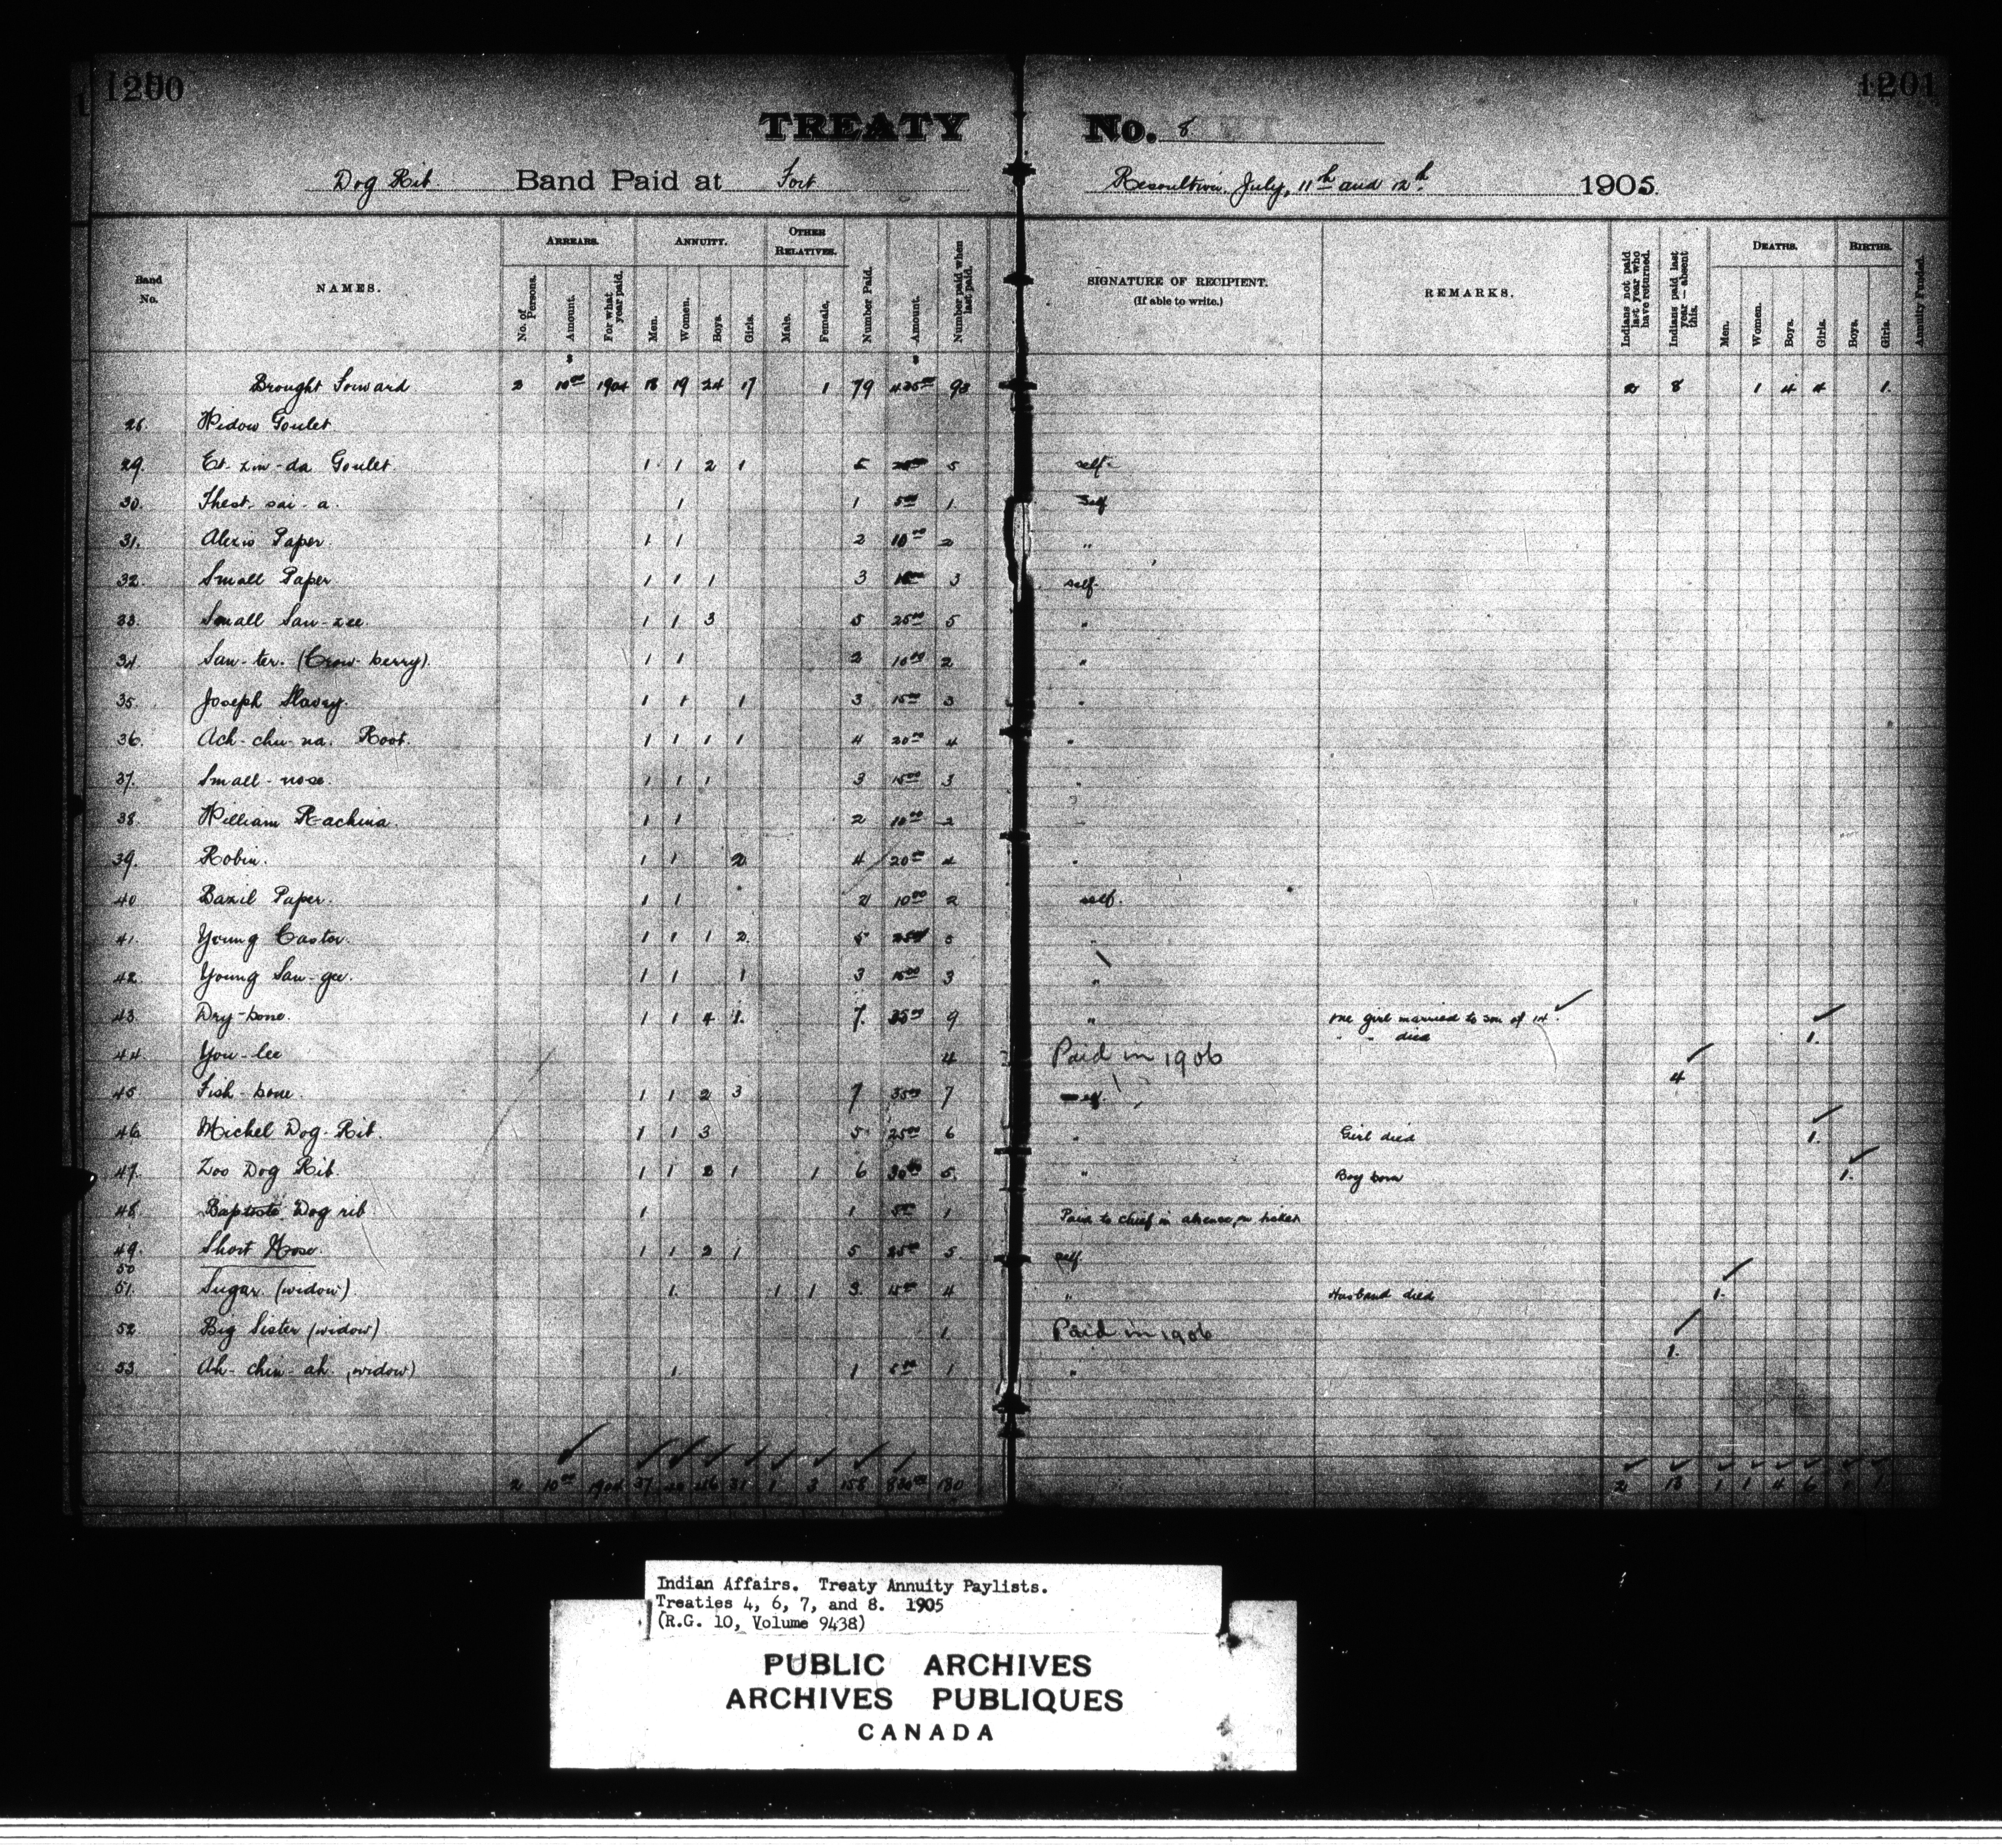 1200
1201
TREATY No. 8
Dog Rib Band Paid at Fort Resoultion July, 11th and 12th 1905.
Band No.
NAMES.
ARREARS.
No. of Persons.
Amount.
For what year paid.
ANNUITY.
Men.
Women.
Boys.
Girls.
OTHER RELATIVES.
Male.
Female.
Number Paid.
Amount.
Number paid when last paid.
SIGNATURE OF RECIPIENT.
(If able to write.)
REMARKS.
Indians not paid last year who have returned.
Indians paid last year — absent this.
DEATHS.
Men.
Women.
Boys.
Girls.
BIRTHS.
Boys.
Girls.
Annuity Funded.
Brought Forward 2 10.00 1904 18 19 24 17 1 79 98 2 8 1 4 4 1.
Widow Goulet
29. Goulet 1 1 2 1 5 5 self.
30. Thest-sai-a. 1 1 5.00 1. Self
31. Alexis Paper. 1 1 2 10.00 2 "
32. Small Paper 1 1 1 3 15.00 3 self.
33. Small San-zee. 1 1 3 5 25.00 5 "
34. San-ter. (Crow-berry). 1 1 2 10.00 2 "
35. Joseph Slavey. 1 1 1 3 15.00 3 "
36. Ach-chu-na. Root. 1 1 1 1 4 20.00 4 "
37. Small-nose. 1 1 1 3 15.00 3 "
38. William 1 1 2 10.00 2
39. Robin. 1 1 2 4 20.00 4 "
40 Bazil Paper. 1 1 2 10.00 2 self.
41. Young Castor. 1 1 1 2. 5 5 "
42. Young San-gee. 1 1 1 3 15.00 3 "
43. Dry-bone. 1 1 4 1. 7. 35.00 9 " one girl married to son of 14.
" " died 1.
44. You-lee 4 Paid in 1906 4
45. Fish-bone. 1 1 2 3 7 35.00 7 self.
46. Michel Dog-Rib. 1 1 3 5 25.00 6 " Girl died 1.
47. Zoo Dog Rib. 1 1 2 1 1 6 30.00 5. " Boy born 1.
48. Baptiste Dog rib 1 1 5.00 1 Paid to chief in absence, on ticket
49. Short Nose. 1 1 2 1 5 25.00 5 self
50
51. Sugar. (widow). 1. 1 1 3. 15.00 4 " Husband died 1.
52. Big Sister (widow) 1. Paid in 1906 1.
53. Ah-chin-ah. (widow) 1 1 5.00 1 "
2 10.00 1904 37 31 1 3 158 180 2 13 1 1 4 6 1 1
Indian Affairs. Treaty Annuity Paylists.
Treaties 4, 6, 7, and 8. 1905
(R.G. 10, Volume 9438)
PUBLIC ARCHIVES
ARCHIVES PUBLIQUES
CANADA